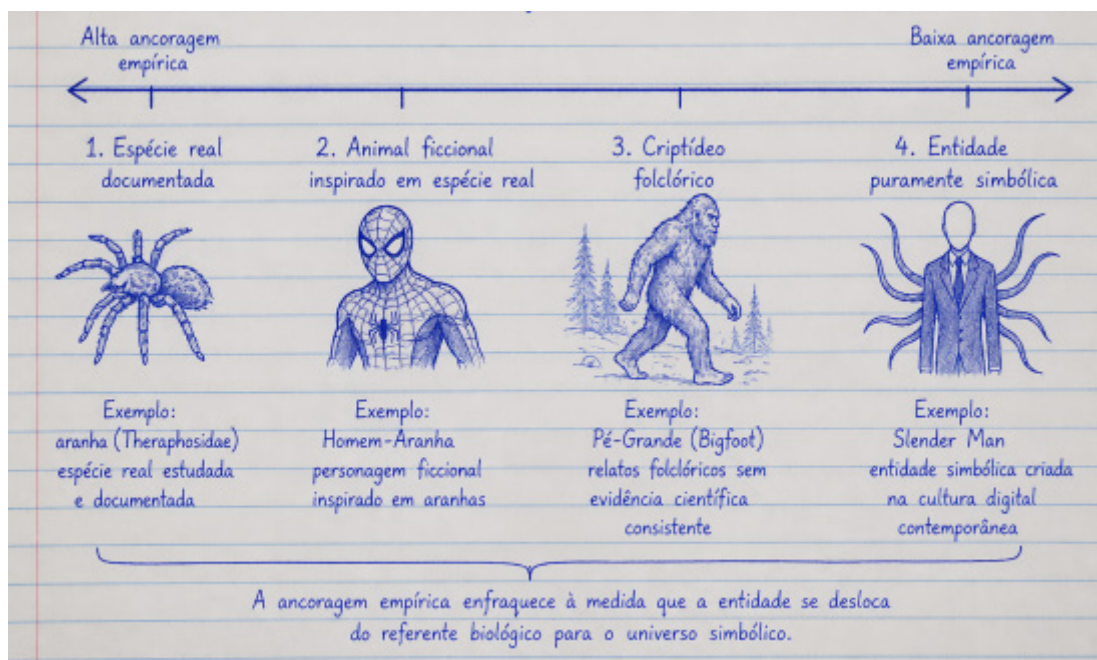 Alta ancoragem
empírica
Baixa ancoragem
empírica
1. Espécie real
documentada
2. Animal ficcional
inspirado em espécie real
3. Criptídeo
folclórico
4. Entidade
puramente simbólica
Exemplo:
aranha (Theraphosidae)
espécie real estudada
e documentada
Exemplo:
Homem-Aranha
personagem ficcional
inspirado em aranhas
Exemplo:
Pé-Grande (Bigfoot)
relatos folclóricos sem
evidência científica
consistente
Exemplo:
Slender Man
entidade simbólica criada
na cultura digital
contemporânea
A ancoragem empírica enfraquece à medida que a entidade se desloca
do referente biológico para o universo simbólico.